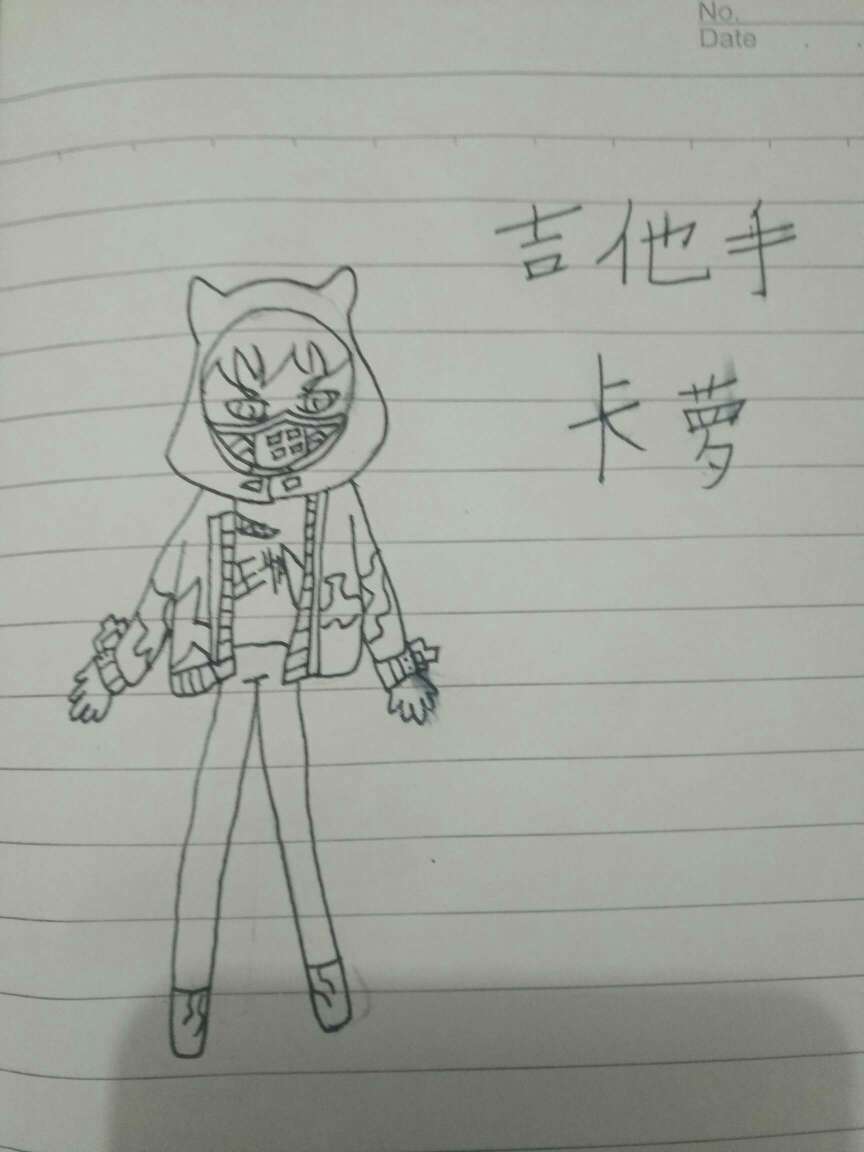 No.
Date
吉他手
卡萝